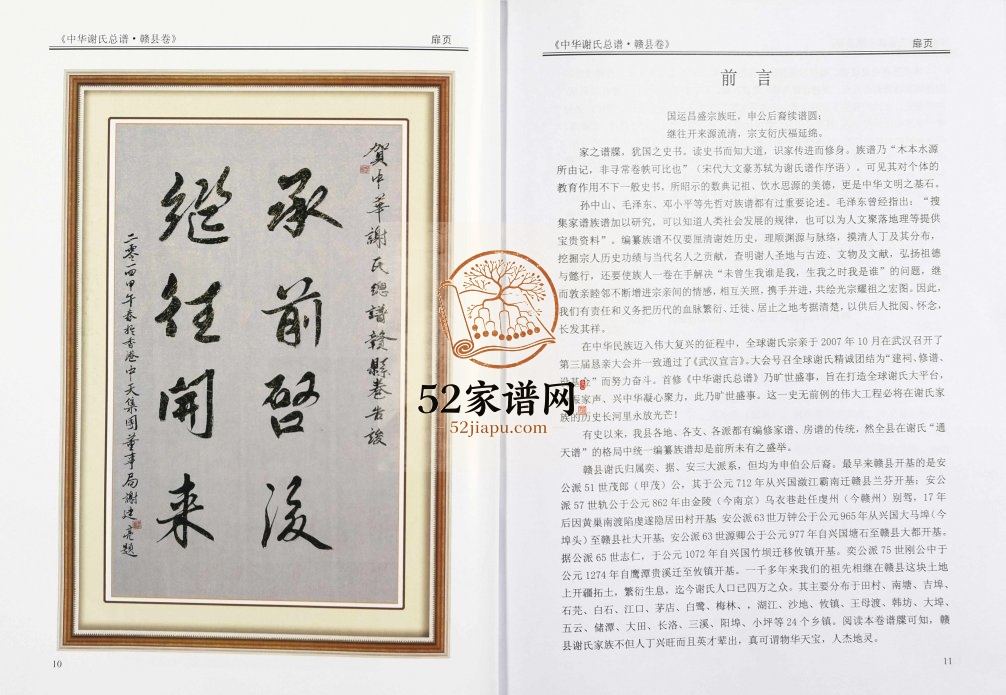 《中华谢氏总谱·赣县卷》
扉页
賀中華謝氏總譜贛縣卷告竣
承前啓後
繼往開来
二零一四甲午春於香港中天集團董事局謝建亮題
10
《中华谢氏总谱·赣县卷》
扉页
前 言
国运昌盛宗族旺，申公后裔续谱圆；
继往开来源流清，宗支衍庆福延绵。
家之谱牒，犹国之史书。读史书而知大道，识家传进而修身。族谱乃“木本水源
所由记，非寻常卷帙可比也”（宋代大文豪苏轼为谢氏谱作序语）。可见其对个体的
教育作用不下一般史书，所昭示的数典记祖、饮水思源的美德，更是中华文明之基石。
孙中山、毛泽东、邓小平等先哲对族谱都有过重要论述。毛泽东曾经指出：“搜
集家谱族谱加以研究，可以知道人类社会发展的规律，也可以为人文聚落地理等提供
宝贵资料”。编纂族谱不仅要厘清谢姓历史，理顺渊源与脉络，摸清人丁及其分布，
挖掘宗人历史功绩与当代名人之贡献，查明谢人圣地与古迹、文物及文献，弘扬祖德
与懿行，还要使族人一卷在手解决“未曾生我谁是我，生我之时我是谁”的问题，继
而敦亲睦邻不断增进宗亲间的情感，相互关照，携手并进，共绘光宗耀祖之宏图。因此，
我们有责任和义务把历代的血脉繁衍、迁徙、居止之地考据清楚，以供后人批阅、怀念，
长发其祥。
在中华民族迈入伟大复兴的征程中，全球谢氏宗亲于 2007 年 10 月在武汉召开了
第三届恳亲大会并一致通过了《武汉宣言》。大会号召全球谢氏精诚团结为“建祠、修谱、
设基金”而努力奋斗。首修《中华谢氏总谱》乃旷世盛事，旨在打造全球谢氏大平台，
振家声、兴中华凝心聚力，此乃旷世盛事。这一史无前例的伟大工程必将在谢氏家
族的历史长河里永放光芒！
有史以来，我县各地、各支、各派都有编修家谱、房谱的传统，然全县在谢氏“通
天谱”的格局中统一编纂族谱却是前所未有之盛举。
赣县谢氏归属奕、据、安三大派系，但均为申伯公后裔。最早来赣县开基的是安
公派 51 世茂郎（甲茂）公，其于公元 712 年从兴国潋江霸南迁赣县兰芬开基；安公
派 57 世轨公于公元 862 年由金陵（今南京）乌衣巷赴任虔州（今赣州）别驾，17 年
后因黄巢南渡陷虔遂隐居田村开基；安公派 63 世万钟公于公元 965 年从兴国大马埠（今
埠头）至赣县社大开基；安公派 63 世源卿公于公元 977 年自兴国塘石至赣县大都开基。
据公派 65 世志仁，于公元 1072 年自兴国竹坝迁移攸镇开基。奕公派 75 世刚公中于
公元 1274 年自鹰潭贵溪迁至攸镇开基。一千多年来我们的祖先相继在赣县这块土地
上开疆拓土，繁衍生息，迄今谢氏人口已四万之众。其主要分布于田村、南塘、吉埠、
石芫、白石、江口、茅店、白鹭、梅林、，湖江、沙地、攸镇、王母渡、韩坊、大埠、
五云、储潭、大田、长洛、三溪、阳埠、小坪等 24 个乡镇。阅读本卷谱牒可知，赣
县谢氏家族不但人丁兴旺而且英才辈出，真可谓物华天宝，人杰地灵。
11
52家谱网
52jiapu.com